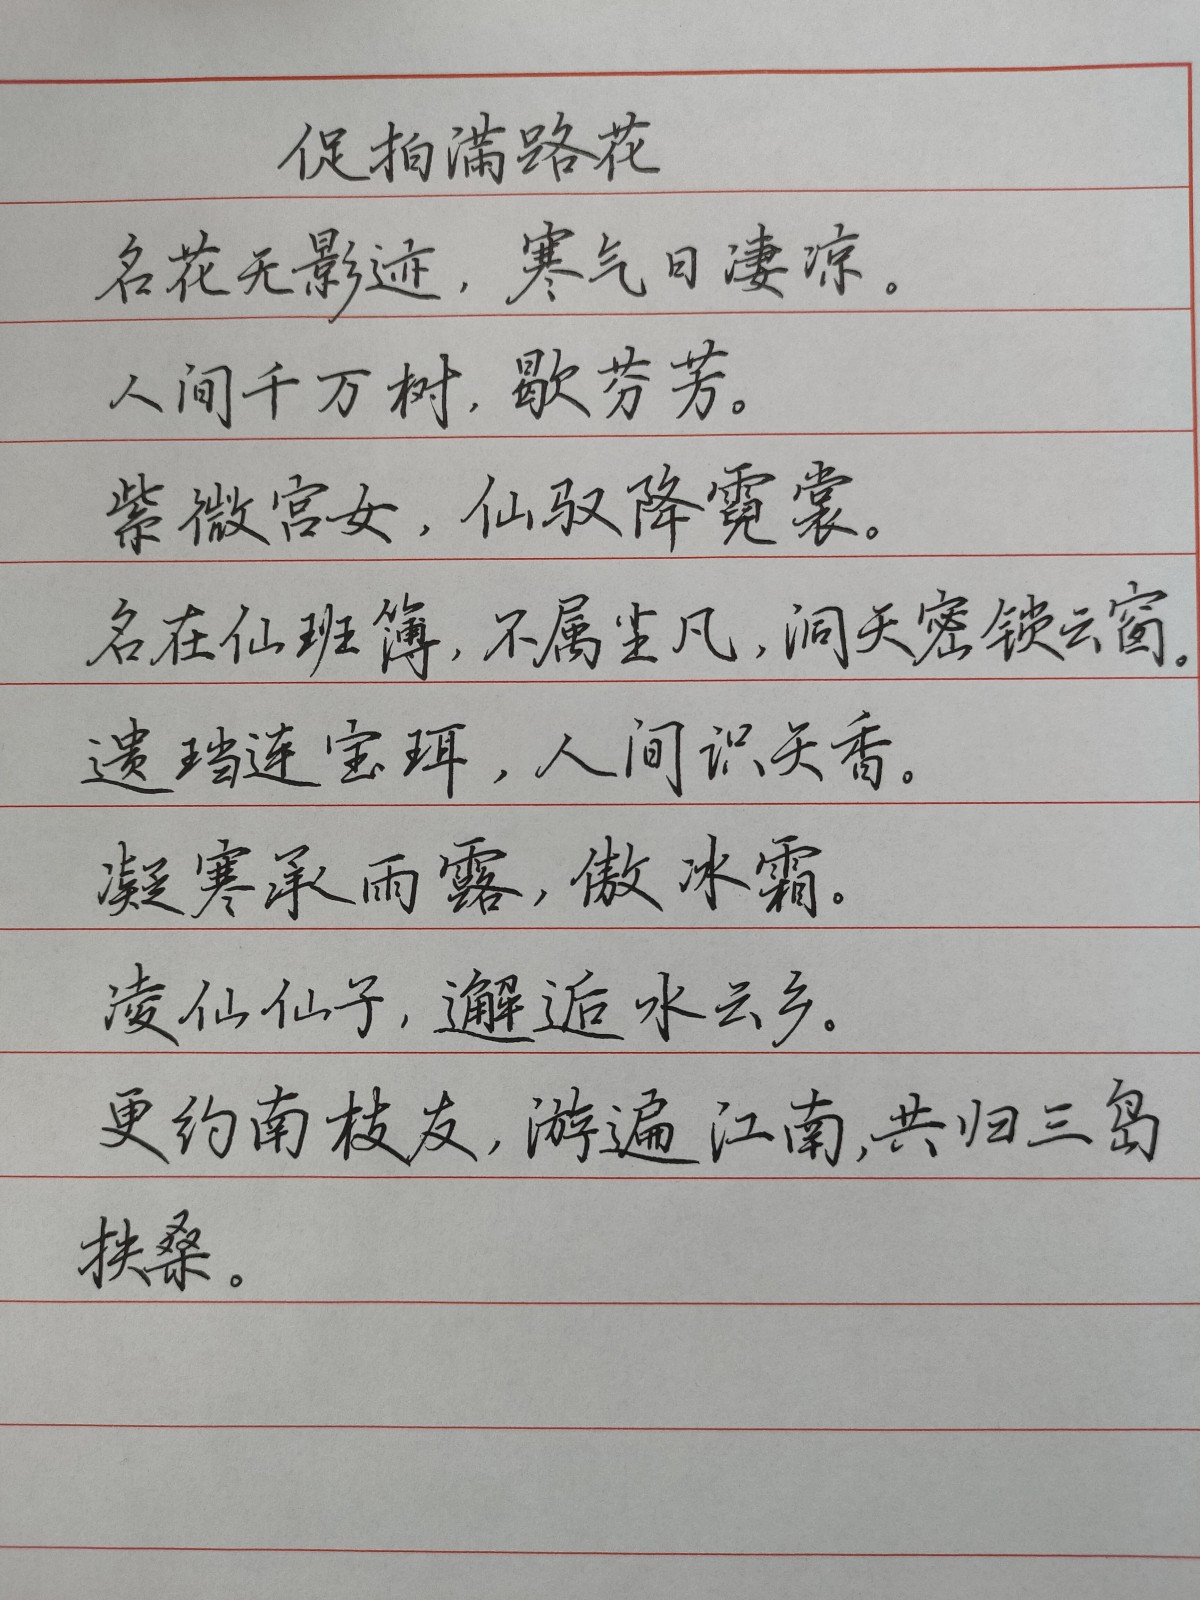 促拍满路花
名花无影迹，寒气日凄凉。
人间千万树，歇芬芳。
紫微宫女，仙驭降霓裳。
名在仙班簿，不属尘凡，洞天密锁云窗。
遗珰连宝珥，人间识天香。
凝寒承雨露，傲冰霜。
凌仙仙子，邂逅水云乡。
更约南枝友，游遍江南，共归三岛
扶桑。